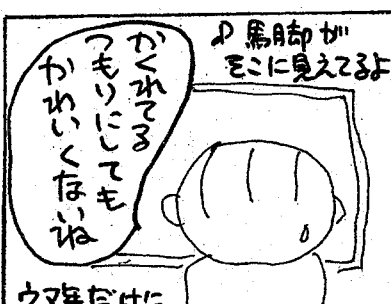 ♪馬脚が
そこに見えてるよ
かくれてる
つもりにしても
かわいくないね
ウマ年だけに